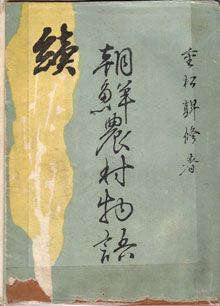 續
朝鮮農村物語
重松髜修著